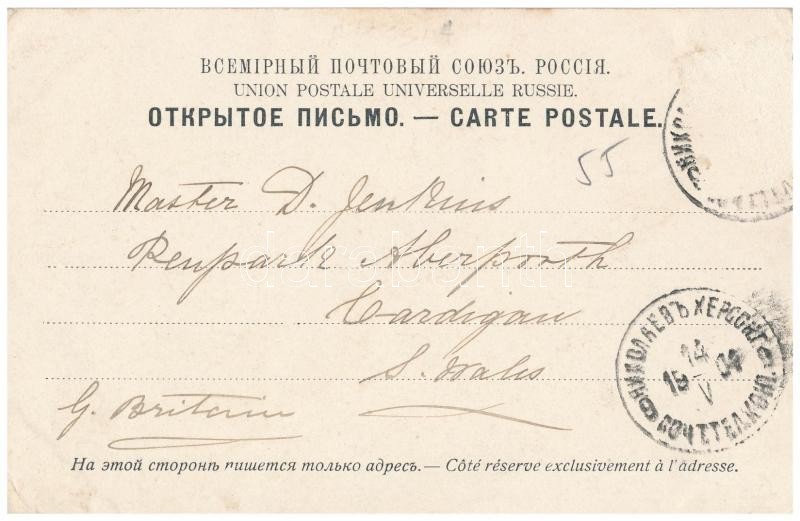 ВСЕМІРНЫЙ ПОЧТОВЫЙ СОЮЗЪ. РОССІЯ.
UNION POSTALE UNIVERSELLE RUSSIE.
ОТКРЫТОЕ ПИСЬМО. — CARTE POSTALE.
55
Master D. Jenkins
Penpark Aberporth
Cardigan
S. Wales
G. Britain
НИКОЛАЕВЪ ХЕРСОН
14
V
На этой сторонѣ пишется только адресъ. — Côté réservé exclusivement à l'adresse.
darabanth